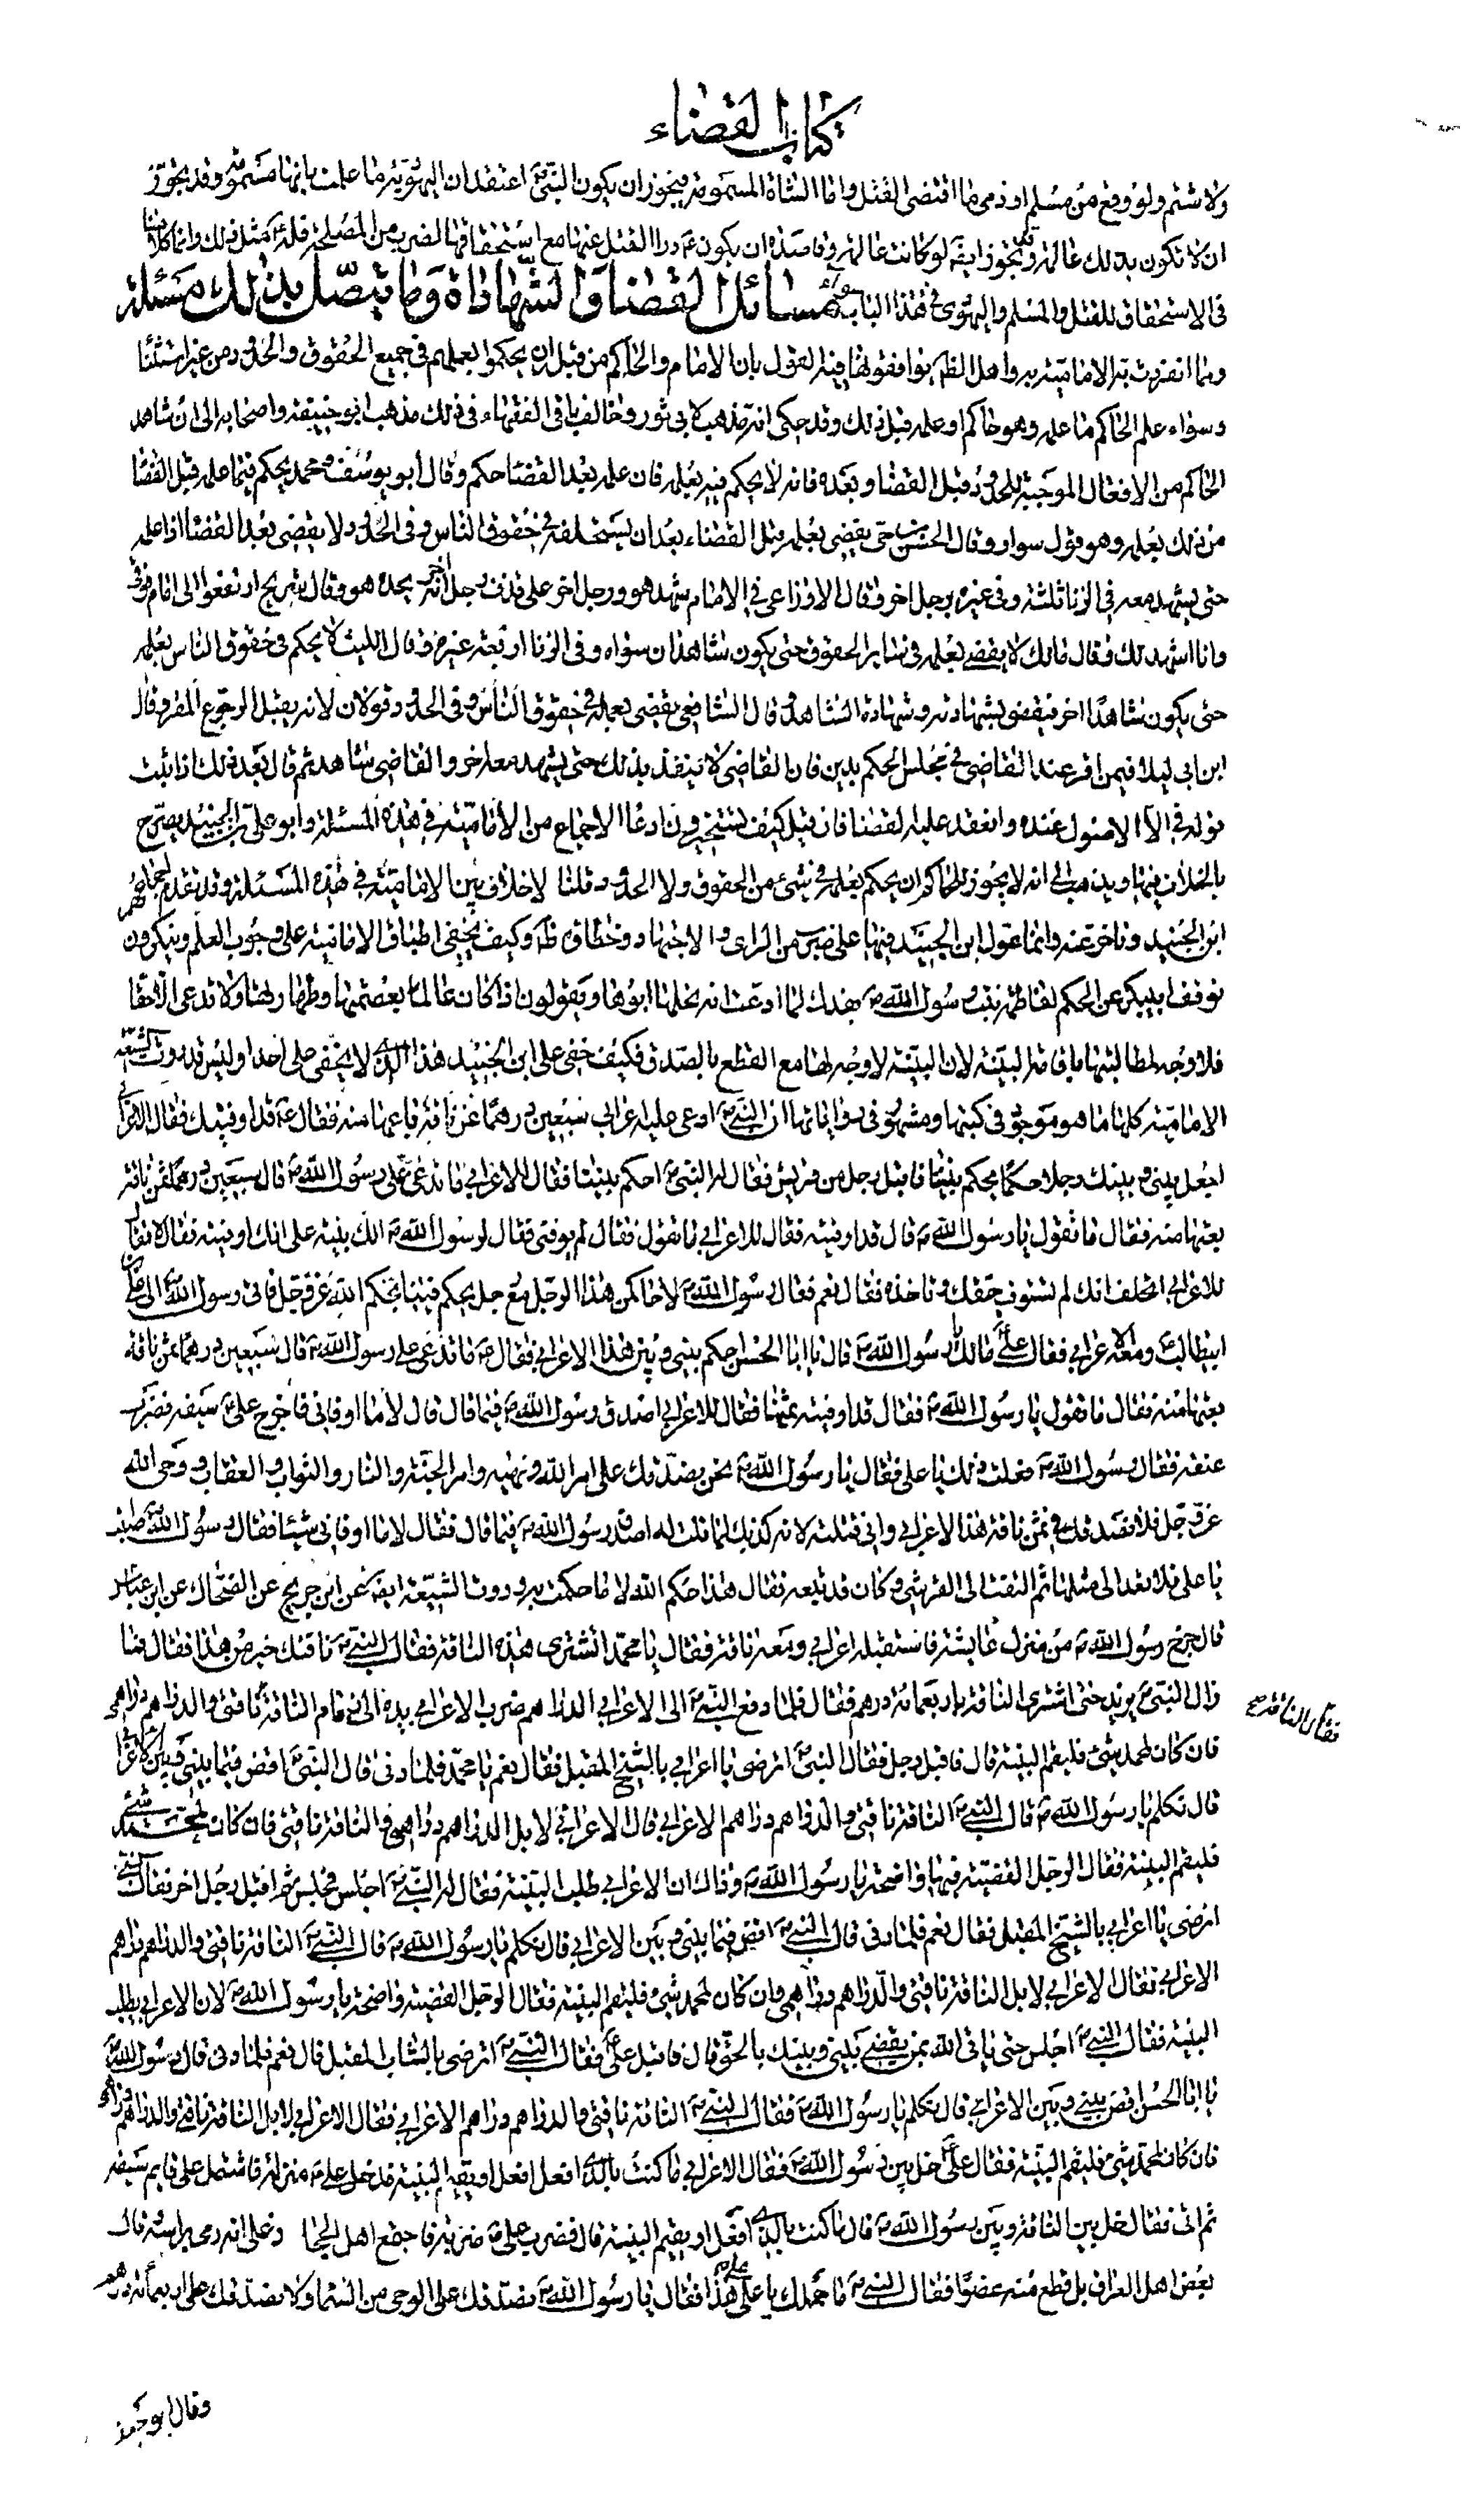 كتاب القضاء
ولا شتم ولو وقع من مسلم او ذمى ما اقتضى القتل واما الشاة المسمومة فيجوز ان يكون النبى ص اعتقد ان اليهودية ما علمت بانها مسمومة وقد يجوز
ان لا تكون بذلك عالمة ويجوز ايضا لو كانت عالمة وقاصدة ان يكون ع درا القتل عنها مع استحقاقها لضرب من المصلحة فله ع مثل ذلك وانما كلامنا
فى الاستحقاق للقتل والمسلم واليهودى فى هذا الباب سواء مسائل القضاء والشهادات وما يتصل بذلك مسئلة
ومما انفردت به الامامية به واهل الظاهر يوافقونها فيه القول بان الامام والحاكم من قبله ان يحكموا بعلمهم فى جميع الحقوق والحدود من غير استثناء
وسواء علم الحاكم ما علمه وهو حاكم او علمه قبل ذلك وقد حكى انه مذهب لابى ثور وخالف باقى الفقهاء فى ذلك مذهب ابو حنيفة واصحابه الى ان شاهد
الحاكم من الافعال الموجبة للحدود قبل القضا وبعده فانه لا يحكم فيه بعلمه فان علمه بعد القضا حكم وقال ابو يوسف ومحمد يحكم فيما علمه قبل القضا
من ذلك بعلمه وهو قول سوار وقال الحسن بن حى يقضى بعلمه قبل القضاء بعد ان يستحلفه فى حقوق الناس وفى الحدود لا يقضى بعد القضا اذا علمه
حتى يشهد معه فى الزنا ثلثة وفى غيره رجل اخر وقال الاوزاعى فى الامام شهد هو ورجل اخر على قذف رجل اخر انه يحده هو وقال شريح ارتفعوا الى امام فوقى
وانا اشهد لك وقال مالك لا يقضى بعلمه فى سائر الحقوق حتى يكون شاهدان سواه وفى الزنا اربعة غيره وقال الليث لا يحكم فى حقوق الناس بعلمه
حتى يكون شاهدا اخر فيقضى بشهادته وشهادة الشاهد وقال الشافعى يقضى بعمله فى حقوق الناس وفى الحدود قولان لانه يقبل الرجوع المقر وقال
ابن ابى ليلا فيمن اقر عند القاضى فى مجلس الحكم بدين فان القاضى لا ينفذ بذلك حتى يشهد معه اخر والقاضى شاهد ثم قال بعد ذلك اذا ثبت
عنده وانعقد عليه القضا فان قيل كيف تستجيزون ادعا الاجماع من الامامية فى هذه المسئلة وابو على بن الجنيد يصرح
بالخلاف فيها ويذهب الى انه لا يجوز للحاكم ان يحكم بعلمه فى شىء من الحقوق ولا الحدود قلنا لا خلاف بين الامامية فى هذه المسئلة وقد تقدم اجماعهم
ابن الجنيد وتاخر عنه وانما عول ابن الجنيد فيها على ضرب من الراى والاجتهاد وخطاؤه ظاهر وكيف يخفى اطباق الامامية على وجوب العلم وينكرون
توقف ابى بكر عن الحكم لفاطمة بنت رسول الله ص بفدك لما ادعت انه نحلها ابوها ويقولون اذا كان عالما بعصمتها وطهارتها ولا تدعى الا حقا
فلا وجه لمطالبتها باقامة البينة لان البينة لا وجه لها مع القطع بالصدق فكيف خفى على ابن الجنيد هذا الذى لا يخفى على احد او ليس قد روت الشيعة
الامامية كلها ما هو موجود فى كتبها ومشهور فى رواياتها ان النبى ص ادعى عليه اعرابى سبعين درهما ثمن ناقة باعها منه فقال ع قد اوفيتك فقال الاعرابى
اجعل بينى وبينك رجلا حكما يحكم بيننا فاقبل رجل من قريش فقال له النبى ص احكم بيننا فقال للاعرابى ما تدعى على رسول الله ص قال سبعين درهما ثمن ناقة
بعتها منه فقال ما تقول يا رسول الله ص قال قد اوفيته فقال للاعرابى ما تقول فقال لم يوفنى فقال لرسول الله ص الك بينة على انك اوفيته فقال لا فقال
للاعرابى اتحلف انك لم تستوف حقك وتاخذه فقال نعم فقال رسول الله ص لاتحاكمن هذا الرجل مع رجل يحكم فينا بحكم الله عز وجل فاتى رسول الله ص الى على بن
ابيطالب ع ومعه الاعرابى فقال على ع مالك يا رسول الله ص قال يا ابا الحسن احكم بينى وبين هذا الاعرابى فقال ع ما تدعى على رسول الله ص قال سبعين درهما ثمن ناقة
بعتها منه فقال ما تقول يا رسول الله ص فقال قد اوفيته ثمنها فقال للاعرابى اصدق رسول الله ص فيما قال قال لا ما اوفانى فاخرج على ع سيفه فضرب
عنقه فقال رسول الله ص فعلت ذلك يا على فقال يا رسول الله ص نحن نصدقك على امر الله ونهيه وامر الجنة والنار والثواب والعقاب ووحى الله
عز وجل فلا نصدقك فى ثمن ناقة هذا الاعرابى وانى قتلته لانه كذبك لما قلت له اصدق رسول الله ص فيما قال فقال لا ما اوفانى شيئا فقال رسول الله ص اصبت
يا على فلا تعد الى مثلها ثم التفت الى القرشى وكان قد تبعه فقال هذا حكم الله لا ما حكمت به وروت الشيعة ايضا عن ابن جريح عن الضحاك عن ابن عباس
قال خرج رسول الله ص من منزل عايشة فاستقبله اعرابى ومعه ناقة فقال يا محمد اتشترى هذه الناقة فقال النبى ص ناقتك خير من هذا فقال فما
زال النبى ص يزيد حتى اشترى الناقة باربعمائة درهم فقال فلما دفع النبى ص الى الاعرابى الدراهم ضرب الاعرابى يده الى زمام الناقة فقال الناقة ناقتى والدراهم دراهمى
فان كان لمحمد شىء فليقم البينة قال فاقبل رجل فقال النبى ص اترضى يا اعرابى بالشيخ المقبل فقال نعم يا محمد فلما دنى قال النبى ص اقض فيما بينى وبين الاعرابى
قال تكلم يا رسول الله ص قال النبى ص الناقة ناقتى والدراهم دراهم الاعرابى قال الاعرابى لا بل الدراهم دراهمى والناقة ناقتى فان كان لمحمد شىء
فليقم البينة فقال الرجل القضية فيها واضحة يا رسول الله ص وذاك ان الاعرابى طلب البينة فقال له النبى ص اجلس فجلس ثم اقبل رجل اخر فقال النبى ص
اترضى يا اعرابى بالشيخ المقبل فقال نعم فلما دنى قال النبى ص اقض فيما بينى وبين الاعرابى قال تكلم يا رسول الله ص قال النبى ص الناقة ناقتى والدراهم دراهم
الاعرابى فقال الاعرابى لا بل الناقة ناقتى والدراهم دراهمى وان كان لمحمد شىء فليقم البينة فقال الرجل القضية واضحة يا رسول الله ص لان الاعرابى يطلب
البينة فقال النبى ص اجلس حتى ياتى الله بمن يقضى بينى وبينك بالحق قال فاقبل على ع فقال النبى ص اترضى بالشاب المقبل قال نعم فلما دنى قال رسول الله ص
يا ابا الحسن اقض بينى وبين الاعرابى قال تكلم يا رسول الله ص فقال النبى ص الناقة ناقتى والدراهم دراهم الاعرابى فقال الاعرابى لا بل الناقة ناقتى والدراهم دراهمى
فان كان لمحمد شىء فليقم البينة فقال على ع خل بين رسول الله ص فقال الاعرابى ما كنت بالذى افعل افعل او يقيم البينة فدخل على ع منزله فاشتمل على قايم سيفه
ثم اتى فقال خل بين الناقة وبين رسول الله ص قال ما كنت بالذى افعل او يقيم البينة قال فضرب على ع ضربة فاجتمع اهل الحجاز على انه رمى براسه قال
بعض اهل العراق بل قطع منه عضوا فقال النبى ص ما حملك يا على على هذا فقال يا رسول الله ص نصدقك على الوحى من السماء ولا نصدقك على اربعمائة درهم
فقال الناقة صح
وقال ابو جعفر